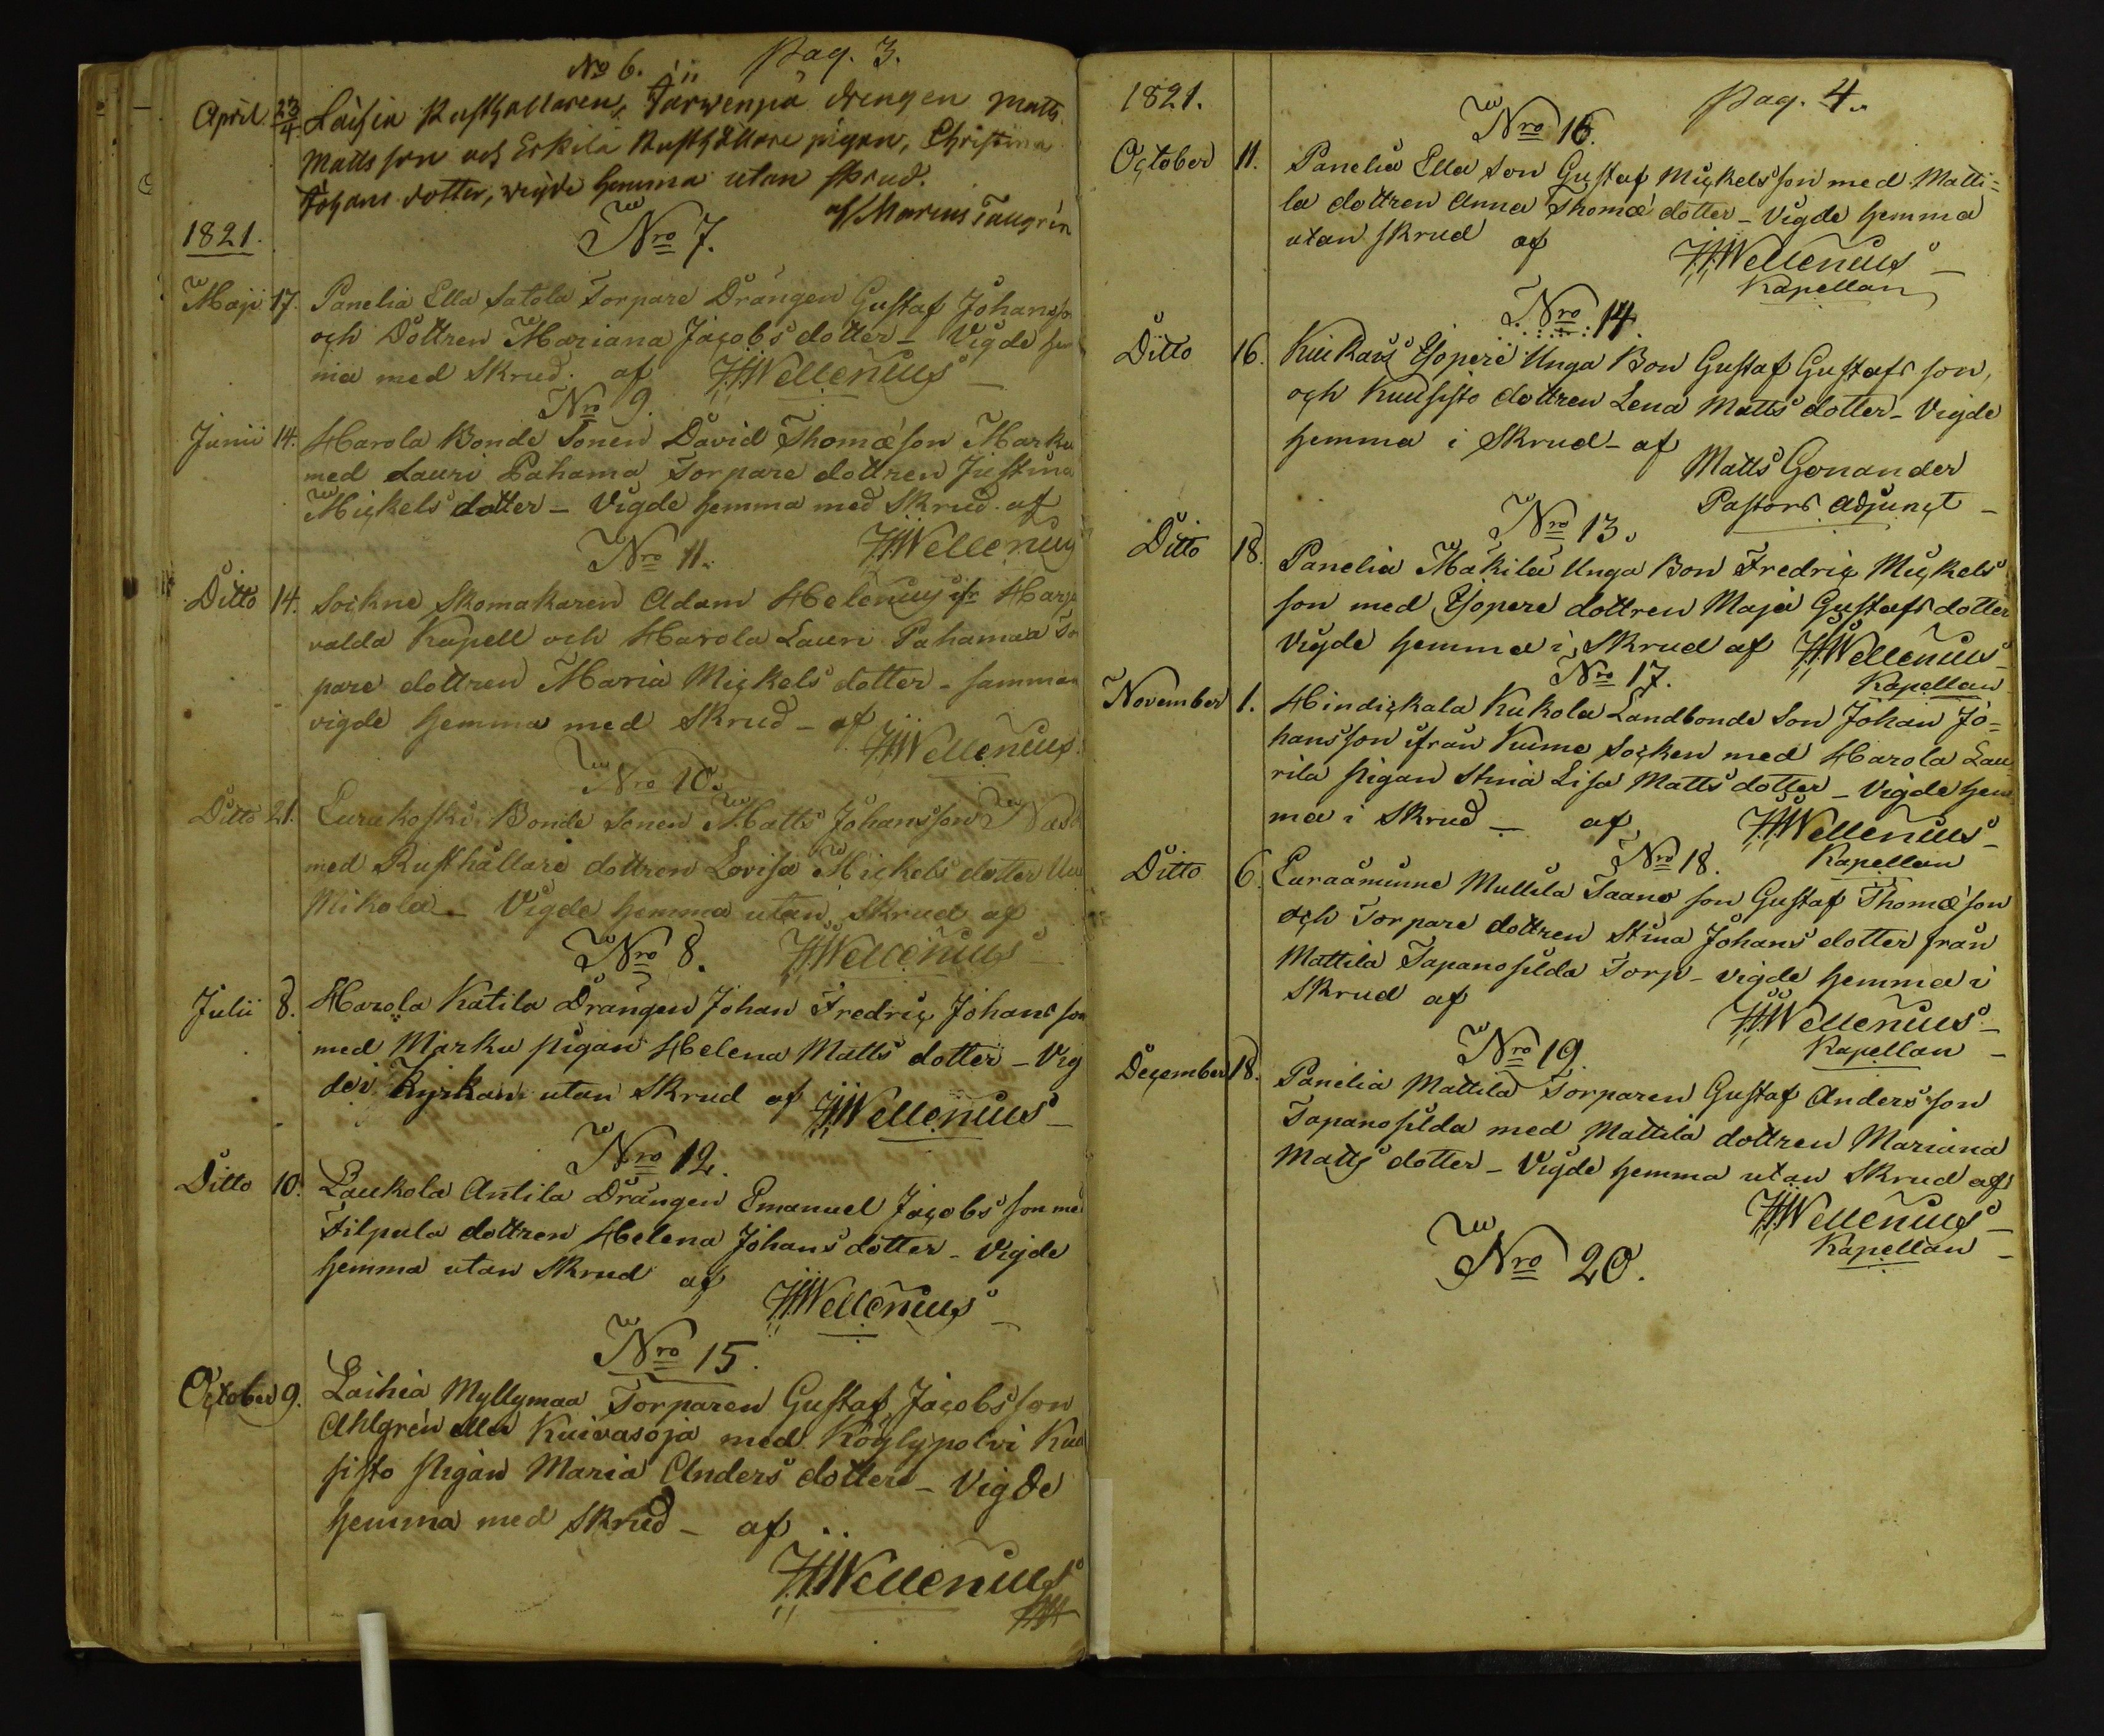 No 6. Pag. 3.
April 23/4 Laihia Rusthållaren, Tarwenpä drengen Matts
Matts son och Eskilä Rusthållare pigan, Christina
Johans dotter, wigde hemma utan skrud.
af Marcus Taugrén
1821.
Nro 7.
Maji 17. Panelia Ella Satola Torpare Drängen Gustaf Johansso
och Dottren Mariana Jacobs dotter – Vigde hem
ma med Skrud. af HWellenius –
Nro 9.
Junii 14. Harola Bonde Sonen David Thomæ son Marku
med Lauri Pahama Torpare dottren Justina
Mickels dotter – Vigde hemma med Skrud. af
HWellenius
Nro 11.
Ditto 14. Sockne Skomakaren Adam Helenius ifr Harja
valda Kapell och Harola Lauri Pahamaa To
pare dottren Maria Mickels dotter – samman
vigde hemma med Skrud – af
HWellenius.
Nro 10.
Ditto 21. Eurakoski Bonde Sonen Matts Johansson
med Rusthållare dottren Lovisa Mickels dotter Uu
Mikola – Vigde hemma utan Skrud af
Nro 8. HWellenius –
Julii 8. Harola Katila Drängen Johan Fredric Johans son
med Marku pigan Helena Matts dotter – Vig
de i Kyrkan utan Skrud af HWellenius –
Nro 12.
Ditto 10. Laukola Antila Drängen Emanuel Jacobs son me
Filpula dottren Helena Johans dotter – Vigde
hemma utan Skrud af
HWellenius –
Nro 15.
October 9. Laihia Myllymaa Torparen Gustaf Jacobs son
Ahlgrén eller Kuivasoja med Köylypolvi Kuu
sisto Pigan Maria Anders dotter – Vigde
hemma med Skrud – af
HWellenius
1821. Pag. 4.
Nro 16.
October 11. Panelia Ella Son Gustaf Mickels son med Matti=
la dottren Anna Thomæ dotter – Vigde hemma
utan skrud af HWellenius –
Kapellan
Nro 14.
Ditto 16. Kiukais Yopere Unga Bon Gustaf Gustafs son,
och Kuusisto dottren Lena Matts dotter – Vigde
hemma i Skrud – af
Matts Gonander
Pastors Adjunct –
Nro 13.
Ditto 18. Panelia Mäkilä Unga Bon Fredric Mickels
son med Yopere dottren Maja Gustafs dotter
Vigde hemma i Skrud af HWellenius –
Nro 17. Kapellan
November 1. Hindickala Kukola Landbonde Son Johan Jo=
hans son ifrån Kumo Socken med Harola Lau
rila Pigan Stina Lisa Matts dotter – Vigde hem
ma i Skrud – af HWellenius –
Nro 18. Kapellan
Ditto 6. Euraåminne Mullila Taano son Gustaf Thomæ son
och Torpare dottren Stina Johans dotter från
Mattila Tapanosilda Torp – vigde hemma i
Skrud af HWellenius –
Nro 19. Kapellan –
December 18. Panelia Mattila Torparen Gustaf Anders son
Tapanosilda med Mattila dottren Mariana
Matts dotter – Vigde hemma utan Skrud af
HWellenius –
Kapellan –
Nro 20.